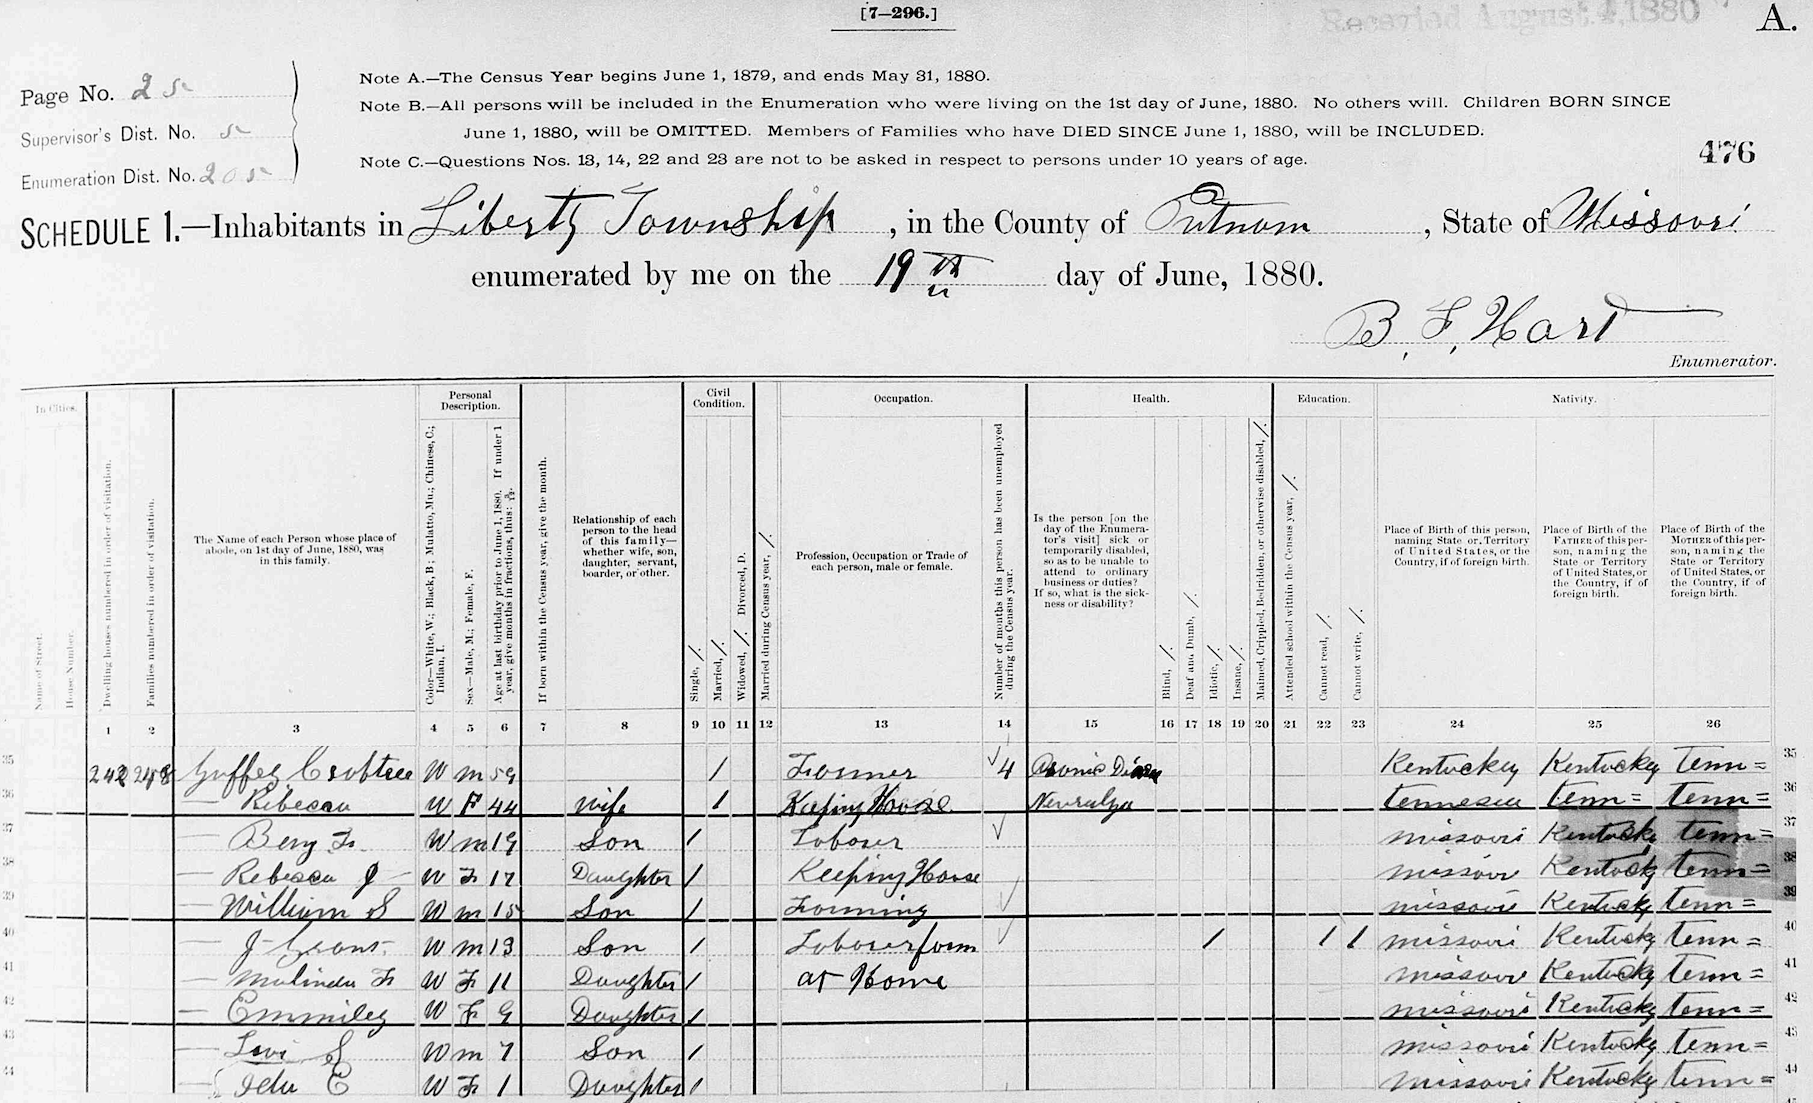 [7—296.]
Received August 4, 1880
A.
Page No. 25
Supervisor's Dist. No. 5
Enumeration Dist. No. 205
Note A.—The Census Year begins June 1, 1879, and ends May 31, 1880.
Note B.—All persons will be included in the Enumeration who were living on the 1st day of June, 1880. No others will. Children BORN SINCE
June 1, 1880, will be OMITTED. Members of Families who have DIED SINCE June 1, 1880, will be INCLUDED.
Note C.—Questions Nos. 13, 14, 22 and 23 are not to be asked in respect to persons under 10 years of age.
476
SCHEDULE 1.—Inhabitants in Liberty Township, in the County of Putnam, State of Missouri
enumerated by me on the 19th day of June, 1880.
B. F. Hart
Enumerator.
In Cities.
Name of Street.
House Number.
Dwelling houses numbered in order of visitation.
Families numbered in order of visitation.
The Name of each Person whose place of
abode, on 1st day of June, 1880, was
in this family.
Personal
Description.
Color—White, W.; Black, B.; Mulatto, Mu.; Chinese, C.;
Indian, I.
Sex—Male, M.; Female, F.
Age at last birthday prior to June 1, 1880. If under 1
year, give months in fractions, thus: 3/12.
If born within the Census year, give the month.
Relationship of each
person to the head
of this family—
whether wife, son,
daughter, servant,
boarder, or other.
Civil
Condition.
Single, /.
Married, /.
Widowed, /. Divorced, D.
Married during Census year, /.
Occupation.
Profession, Occupation or Trade of
each person, male or female.
Number of months this person has been unemployed
during the Census year.
Health.
Is the person [on the
day of the Enumera-
tor's visit] sick or
temporarily disabled,
so as to be unable to
attend to ordinary
business or duties?
If so, what is the sick-
ness or disability?
Blind, /.
Deaf and Dumb, /.
Idiotic, /.
Insane, /.
Maimed, Crippled, Bedridden, or otherwise disabled, /.
Education.
Attended school within the Census year, /.
Cannot read, /.
Cannot write, /.
Nativity.
Place of Birth of this person,
naming State or Territory
of United States, or the
Country, if of foreign birth.
Place of Birth of the
FATHER of this per-
son, naming the
State or Territory
of United States, or
the Country, if of
foreign birth.
Place of Birth of the
MOTHER of this per-
son, naming the
State or Territory
of United States, or
the Country, if of
foreign birth.
1 2 3 4 5 6 7 8 9 10 11 12 13 14 15 16 17 18 19 20 21 22 23 24 25 26
35 242 248 Guffey Crobtree W m 59 / Farmer √ 4 Kentuckey Kentucky Tenn= 35
36 — Rebecca W F 44 Wife / Keeping House Nevralga tennesee tenn= Tenn= 36
37 — Benj F. W m 19 Son / Laborer √ missouri Kentucky tenn= 37
38 — Rebecca J — W F 17 Daughter / Keeping House missouri Kentucky tenn= 38
39 — William S W m 15 Son / Farming √ missouri Kentucky tenn= 39
40 — J Grant. W m 13 Son / Laborer farm √ / / / missouri Kentucky tenn= 40
41 — Malinda F W F 11 Daughter / at Home missouri Kentucky tenn= 41
42 — Emmiley W F 9 Daughter / missouri Kentucky tenn= 42
43 — Levi S W m 7 Son / missouri Kentucky tenn= 43
44 — Ida E W F 1 Daughter / missouri Kentucky tenn= 44